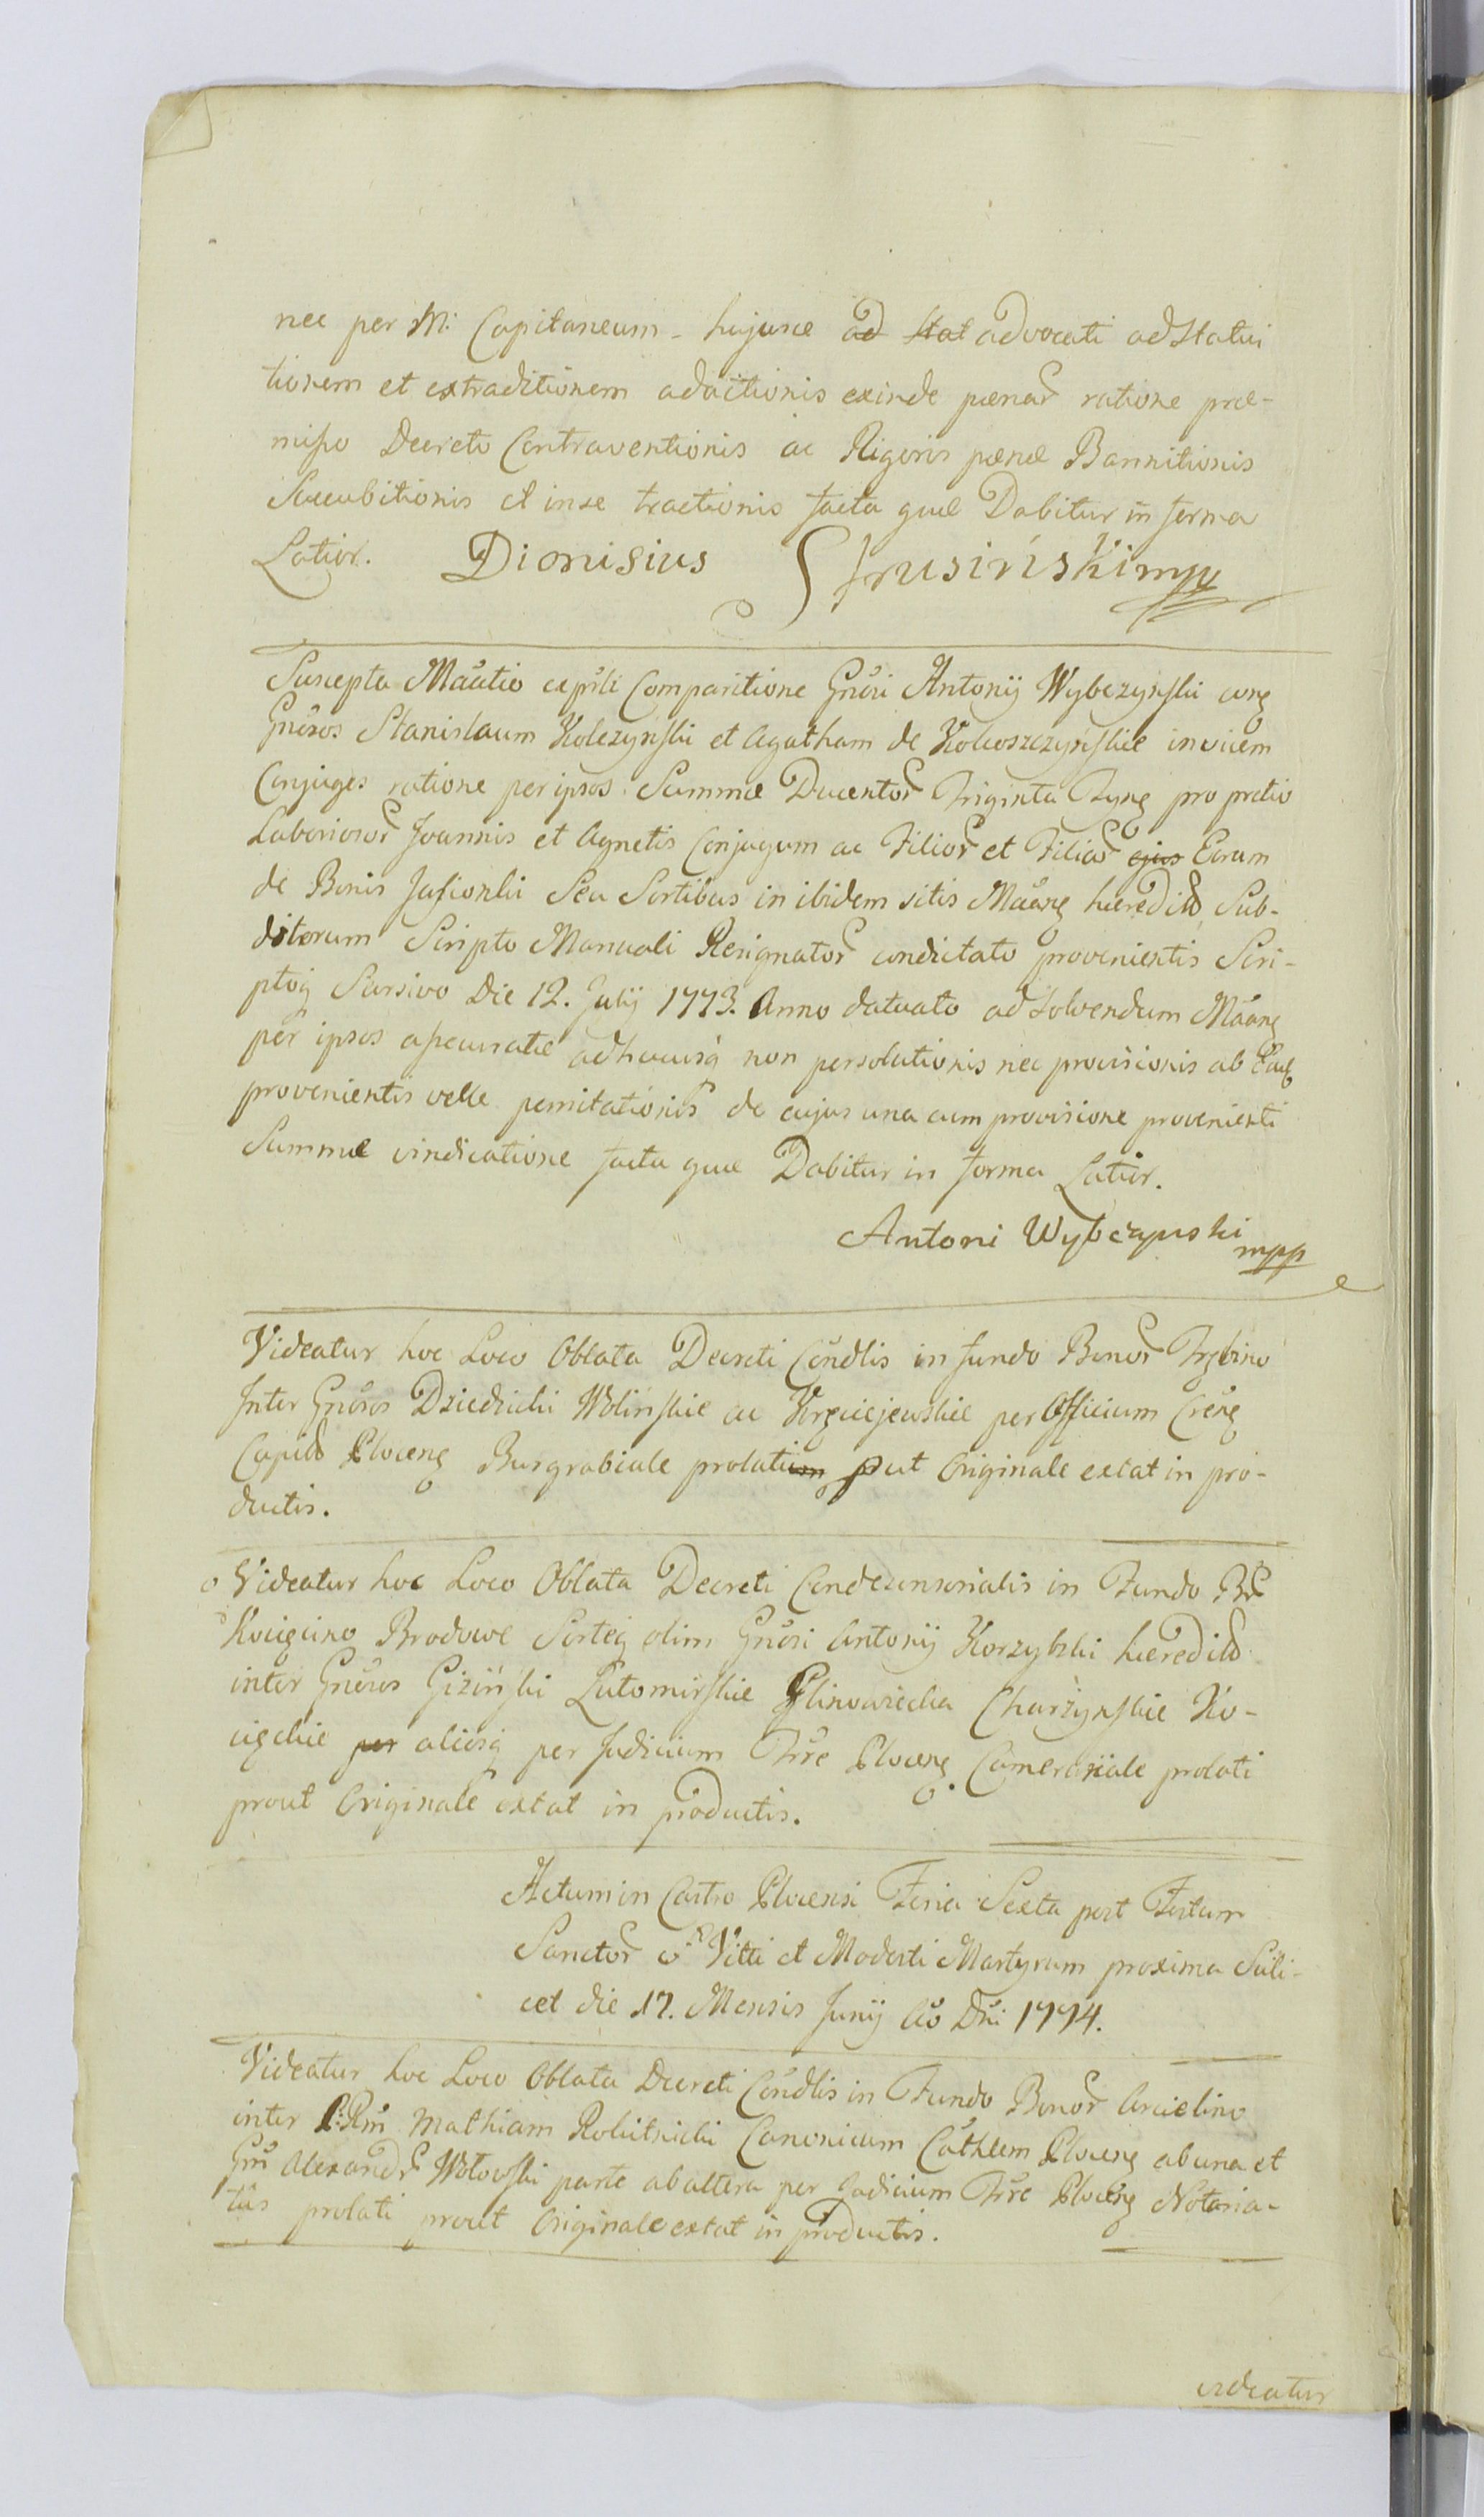 nec per M: Capitaneum hujusce ad Stat advocati ad Statui
tionem et extraditionem adactionis exinde pœnar ratione præ-
misso Decreto Contraventionis ac Rigoris pœnæ Bannitionis
Succubitionis et in se tractionis facta quæ Dabitur in forma
Latior. Dionisius Strusiński mpp
Suscepta Manifestatio Comparitione Gnosi Antonij Wybczyński
Gnosos Stanislaum Kolczyński et Agatham de Kokoszczyńskie invicem
Conjuges ratione per ipsos Summæ Ducentor Triginta Tynf pro pretio
Laboriosor Joannis et Agnetis Conjugum ac Filior et Filiar ejus Eorum
de Bonis Jasionki Seu Sortibus in ibidem sitis hæredit Sub-
ditorum Scripto Manuali Resignator condictato provenientis Scri-
ptoq Sursivo Die 12. Julij 1773. Anno datuato ad Solvendum
per ipsos assecuratæ adhucusq non persolutionis nec provisionis ab Ead
provenientis velle pernitationis de cujus una cum provisione provenienti
Summæ vindicatione facta quæ Dabitur in forma Latior.
Antoni Wybczynski mpp
Videatur hoc Loco Oblata Decreti Condlis in fundo Bonor Trzbino
Inter Gnosos Dziedzicki Wolińskie ac per Officium
Capit Plocen Burgrabiale prolatum put Originale extat in pro-
ductis.
Videatur hoc Loco Oblata Decreti Condecensorialis in Fundo
Kocięcino Brodowe Sorteq olim Gnosi Antonij Korzybski hæredit
inter Gnosos Giżiński Lutomirskie Glinowiecka Charżyńskie Ko-
cięckie per aliosq per Judicium Trre Plocen Camerariale prolati
prout Originale extat in productis.
Actum in Castro Plocensi Feria Sexta post Festum
Sanctor Viti et Modesti Martyrum proxima Scili-
cet die 17. Mensis Junij Ao Dni 1774.
Videatur hoc Loco Oblata Decreti Condlis in Fundo Bonor Arcielino
inter Mathiam Rokitnicki Canonicum Cathlem Plocen ab una et
Gm Alexandr Wołowski parte ab altera per Judicium Trre Plocen Notaria-
prolati prout Originale extat in productis.
videatur